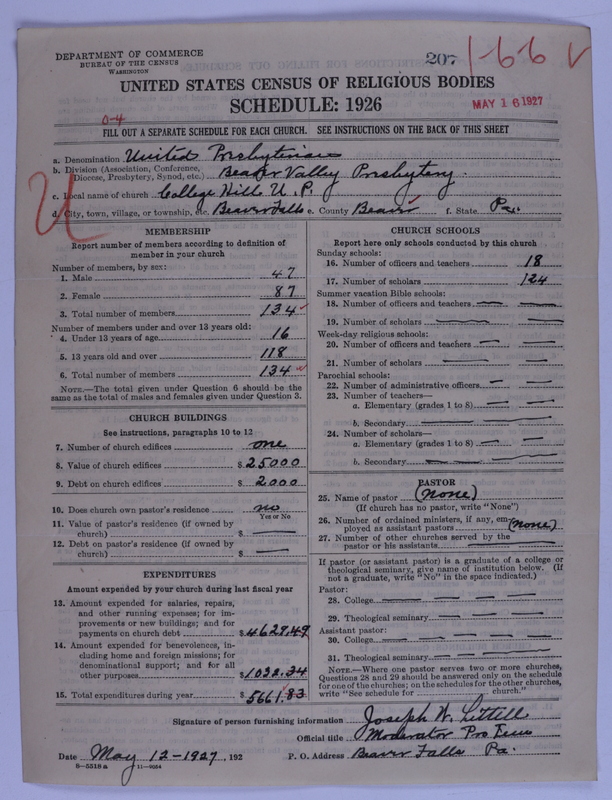 DEPARTMENT OF COMMERCE
BUREAU OF THE CENSUS
WASHINGTON
207
1-66 v
UNITED STATES CENSUS OF RELIGIOUS BODIES
SCHEDULE: 1926
MAY 16 1927
0-4
FILL OUT A SEPARATE SCHEDULE FOR EACH CHURCH. SEE INSTRUCTIONS ON THE BACK OF THIS SHEET
a. Denomination United Presbyterian
b. Division (Association, Conference, Diocese, Presbytery, Synod, etc.) Beaver Valley Presbytery.
c. Local name of church College Hill U.P.
d. City, town, village, or township, etc. Beaver Falls e. County Beaver f. State Pa.
U
MEMBERSHIP
Report number of members according to definition of
member in your church
Number of members, by sex:
1. Male 47
2. Female 87
3. Total number of members 134
Number of members under and over 13 years old:
4. Under 13 years of age 16
5. 13 years old and over 118
6. Total number of members 134
NOTE.—The total given under Question 6 should be
same as the total of males and females given under Question 3.
CHURCH BUILDINGS
See instructions, paragraphs 10 to 12
7. Number of church edifices one
8. Value of church edifices $25000
9. Debt on church edifices $2000
10. Does church own pastor's residence no
Yes or No
11. Value of pastor's residence (if owned by
church) $ —
12. Debt on pastor's residence (if owned by
church) $ —
EXPENDITURES
Amount expended by your church during last fiscal year
13. Amount expended for salaries, repairs,
and other running expenses; for im-
provements or new buildings; and for
payments on church debt $4629.49
14. Amount expended for benevolences, in-
cluding home and foreign missions; for
denominational support; and for all
other purposes $1032.34
15. Total expenditures during year $5661.83
CHURCH SCHOOLS
Report here only schools conducted by this church
Sunday schools:
16. Number of officers and teachers 18
17. Number of scholars 124
Summer vacation Bible schools:
18. Number of officers and teachers —
19. Number of scholars —
Week-day religious schools:
20. Number of officers and teachers —
21. Number of scholars —
Parochial schools:
22. Number of administrative officers —
23. Number of teachers—
a. Elementary (grades 1 to 8) —
b. Secondary —
24. Number of scholars—
a. Elementary (grades 1 to 8) —
b. Secondary —
PASTOR
25. Name of pastor (none)
(If church has no pastor, write "None")
26. Number of ordained ministers, if any, em-
ployed as assistant pastors (none)
27. Number of other churches served by the
pastor or his assistants —
If pastor (or assistant pastor) is a graduate of a college or
theological seminary, give name of institution below. (If
not a graduate, write "No" in the space indicated.)
Pastor:
28. College —
29. Theological seminary —
Assistant pastor:
30. College —
31. Theological seminary —
NOTE.—Where one pastor serves two or more churches,
Questions 28 and 29 should be answered only on the schedule
for one of the churches; on the schedules for the other churches,
write "See schedule for ______ church."
Signature of person furnishing information Joseph W. Littell
Official title Moderator Pro Tem
Date May 12-1927, 192 P. O. Address Beaver Falls Pa.
8-5518a 11-9054